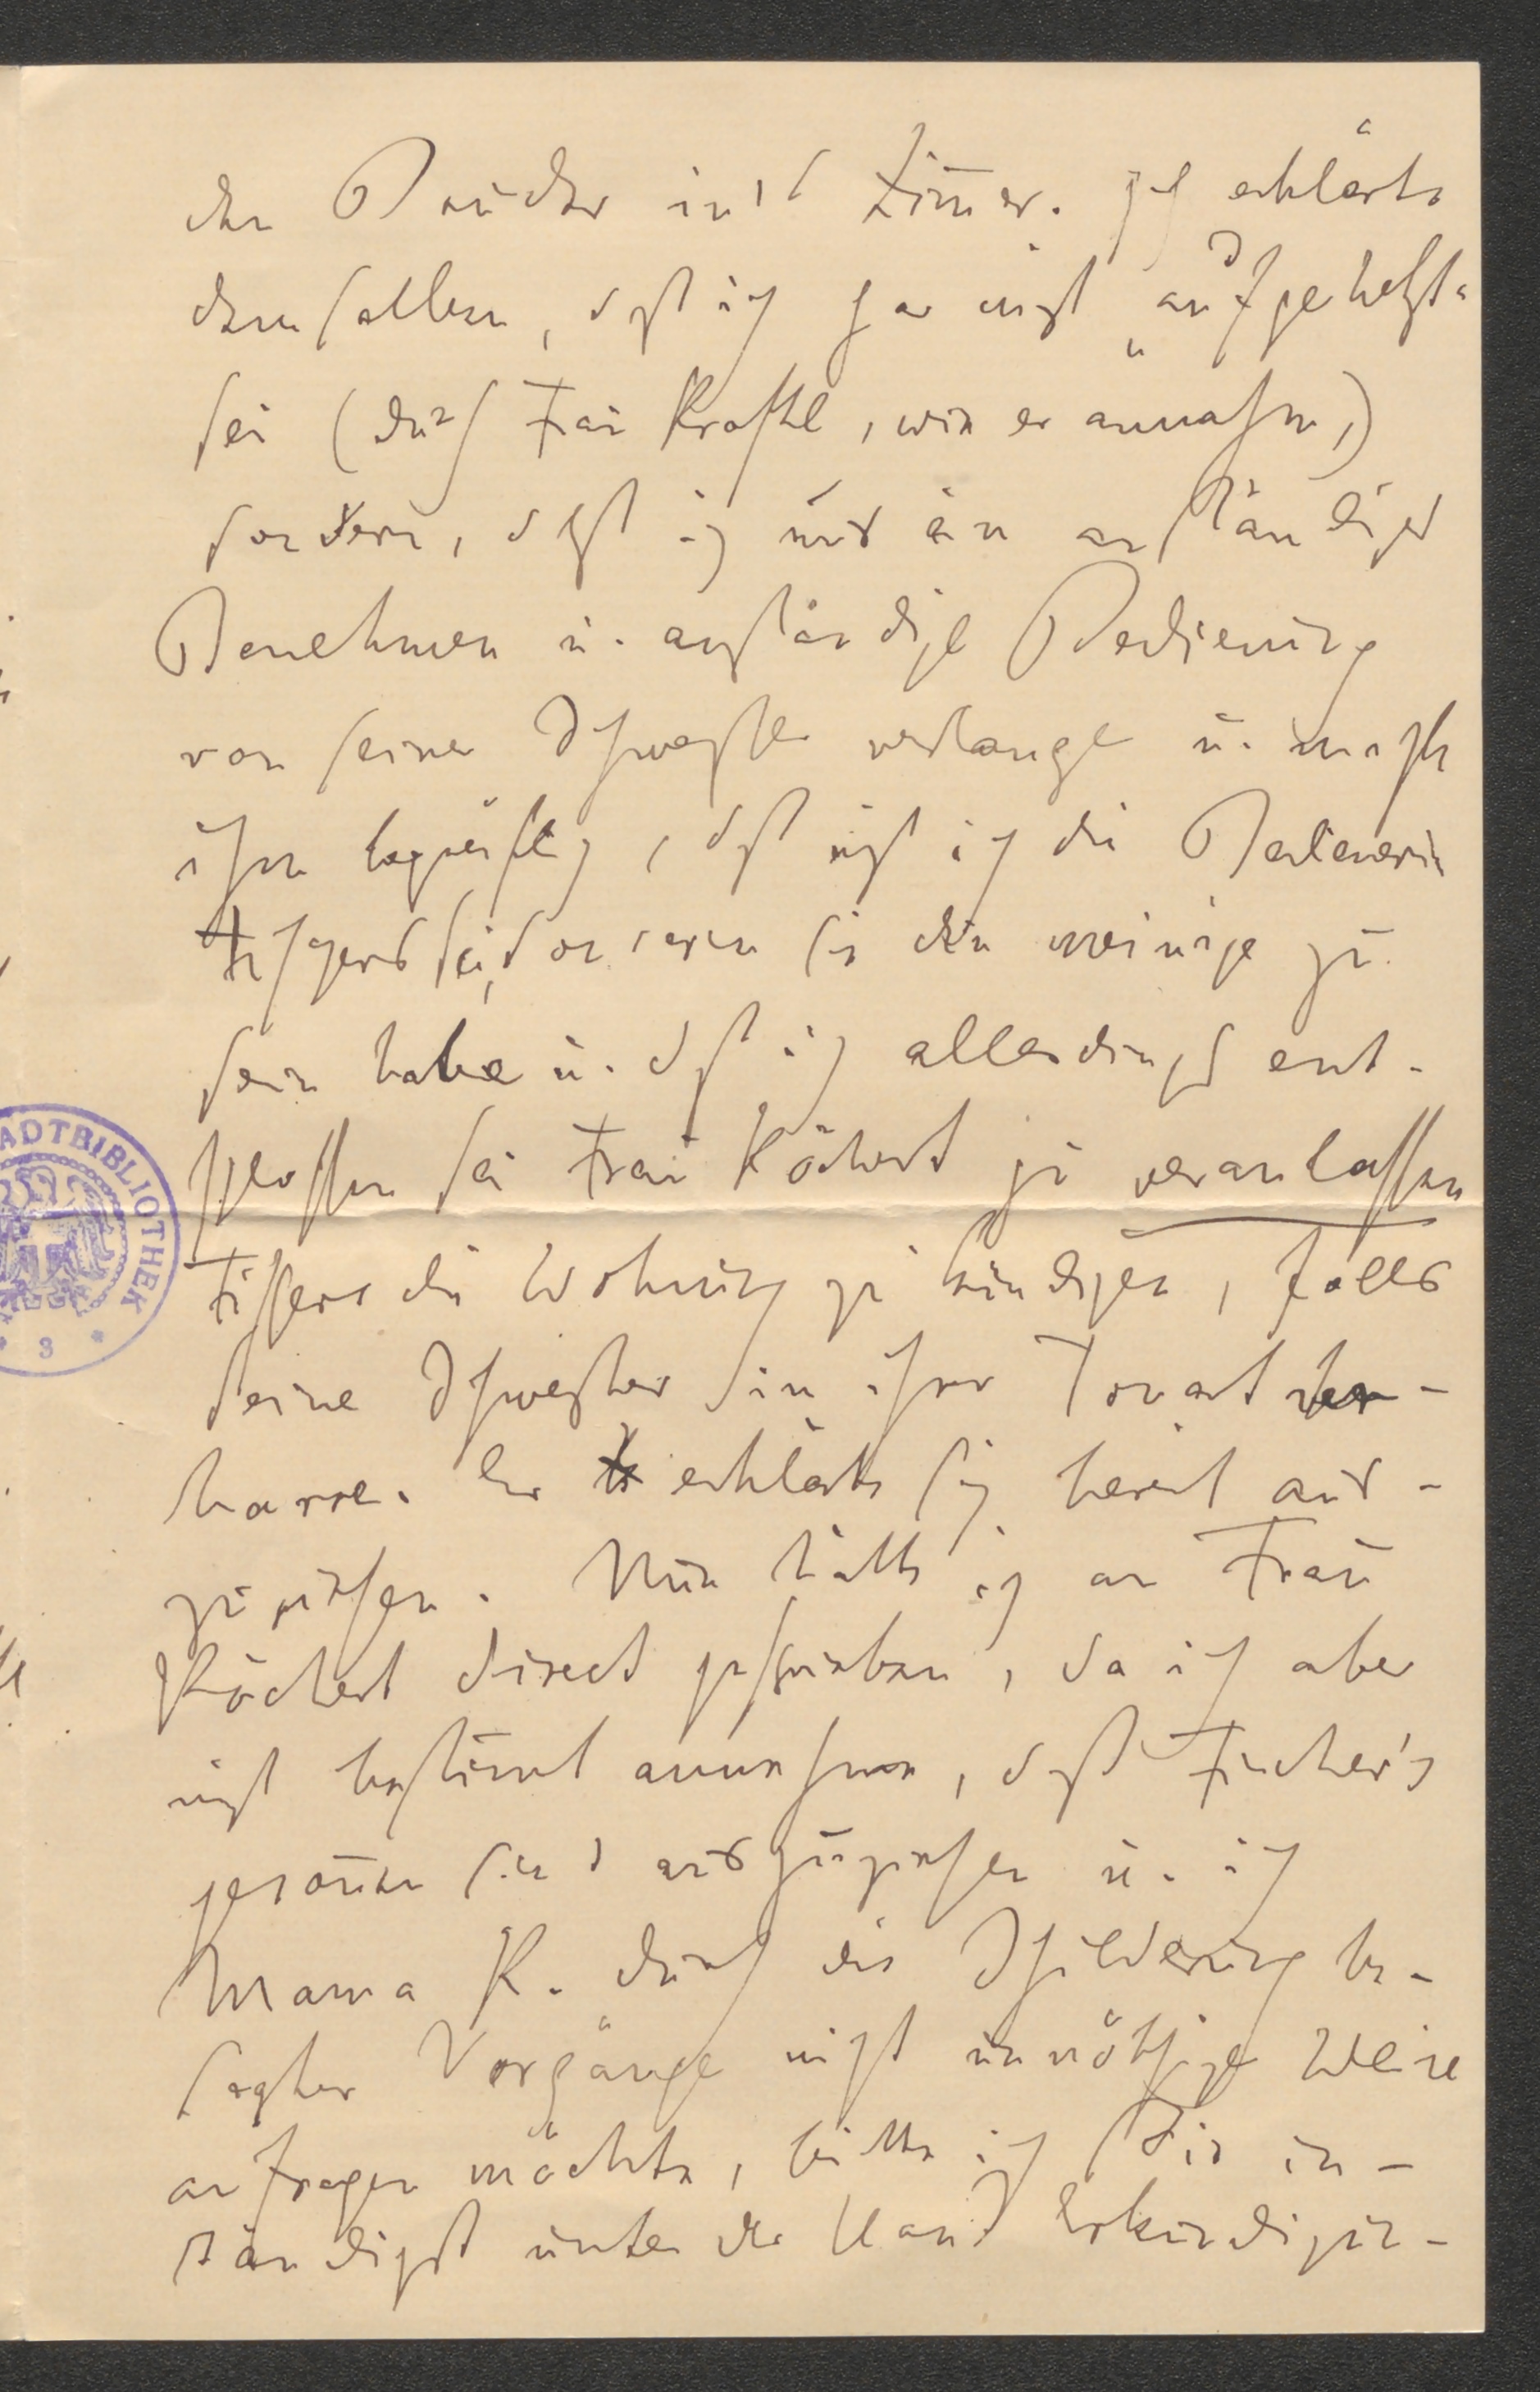 den Bruder in's Zimmer. Ich erklärte
demselben, daß ich gar nicht „aufgehetzt"
sei (durch Frau Kraftl, wie er annahm,)
sondern, daß ich nur ein anständiges
Benehmen u. anständige Bedienung
von seiner Schwester verlange u. machte
ihm begreiflich, daß nicht ich die Dienerin
Fischers sei, sondern sie die meinige zu
sein habe u. daß ich allerdings ent-
schlossen sei Frau Köchert zu veranlassen
Fischers die Wohnung zu kündigen, falls
seine Schwester in ihrer Tonart ver-
harre. Er erklärte sich bereit aus-
zuziehen. Nun hätte ich an Frau
Köchert direct geschrieben, da ich aber
nicht bestimmt annehme, daß Fischer's
gesonnen sind auszuziehen u. ich
Mama K. durch die Schilderung be-
sagter Vorgänge nicht unnöthige Weise
aufregen möchte, bitte ich Dich in-
ständigst unter der Hand Erkundigun-
STADTBIBLIOTHEK
* 3 *